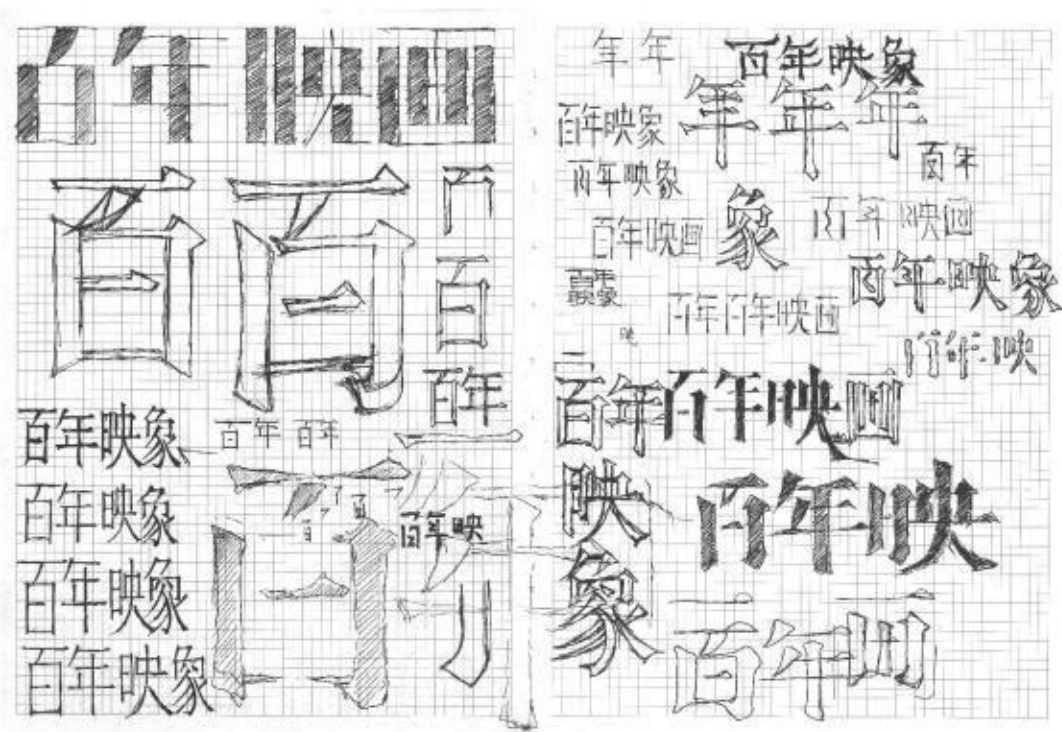 百年映画
百
百
百
百年
百年映象
百年 百年
百年映象
百年映
百年映象
百年映象
年 年
百年映象
年年年
百年映象
百年
百年映象
百年映画
象
百年映画
百年映象
百年百年映画
百年映
百年百年映画
映象
百年映
百年画